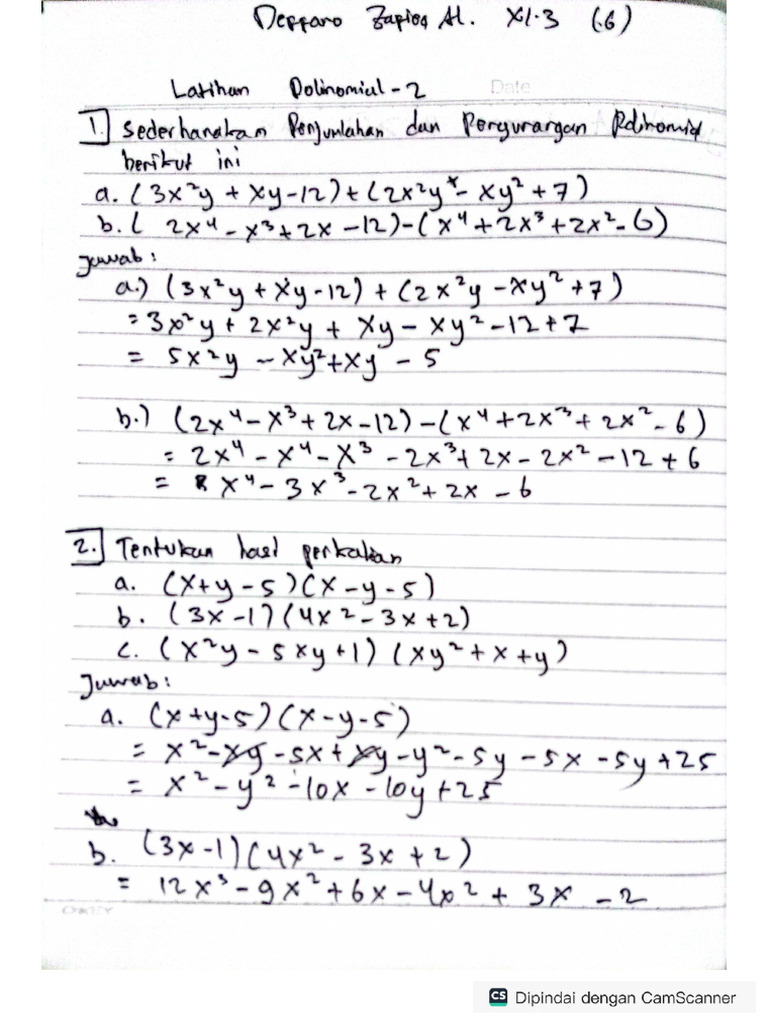 XI.3 (6)
Latihan Polinomial - 2 Date
1. Sederhanakan Penjumlahan dan Pengurangan Polinomial
berikut ini
a. (3x²y + xy - 12) + (2x²y - xy² + 7)
b. ( 2x⁴ - x³ + 2x - 12) - (x⁴ + 2x³ + 2x² - 6)
Jawab :
a.) (3x²y + xy - 12) + (2x²y - xy² + 7)
= 3x²y + 2x²y + xy - xy² - 12 + 7
= 5x²y - xy² + xy - 5
b.) (2x⁴ - x³ + 2x - 12) - (x⁴ + 2x³ + 2x² - 6)
= 2x⁴ - x⁴ - x³ - 2x³ + 2x - 2x² - 12 + 6
= x⁴ - 3x³ - 2x² + 2x - 6
2. Tentukan hasil perkalian
a. (x+y-5)(x-y-5)
b. (3x-1)(4x²-3x+2)
c. (x²y - 5xy + 1) (xy² + x + y)
Jawab :
a. (x+y-5)(x-y-5)
= x² - xy - 5x + xy - y² - 5y - 5x - 5y + 25
= x² - y² - 10x - 10y + 25
b. (3x-1)(4x² - 3x + 2)
= 12x³ - 9x² + 6x - 4x² + 3x - 2
CS Dipindai dengan CamScanner